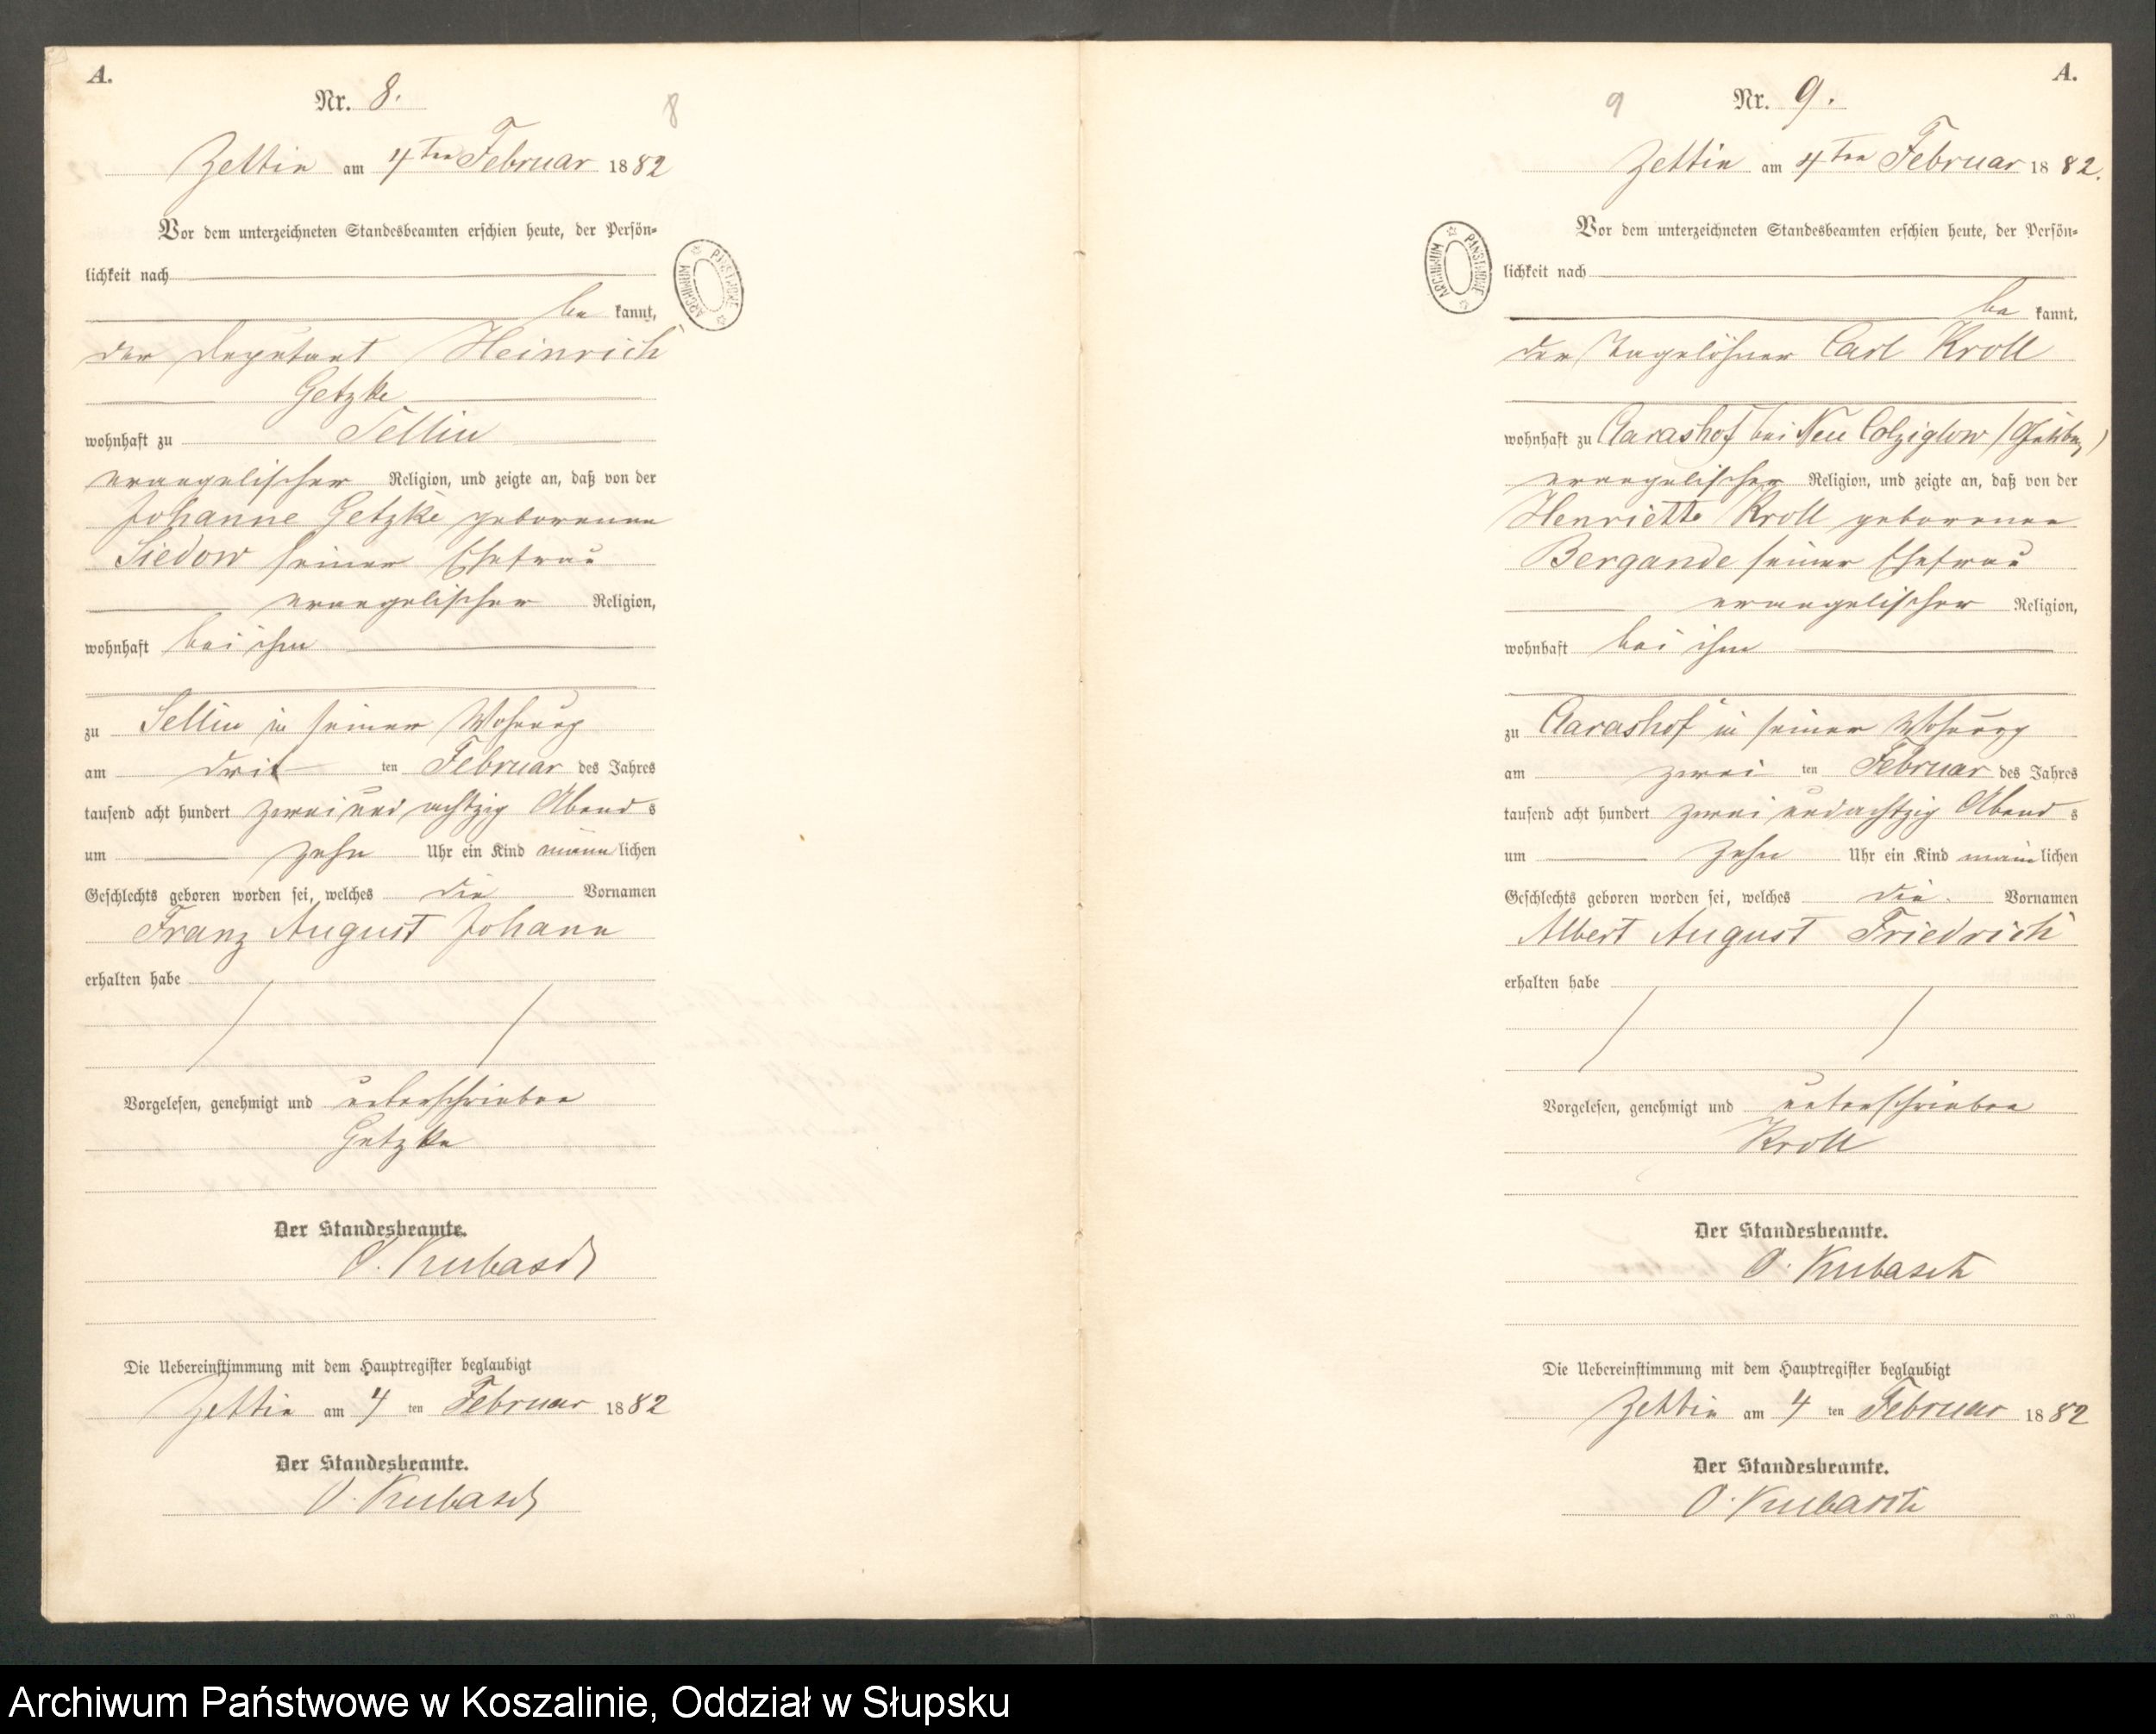 A.
Nr. 8.
8
Zettin am 4ten Februar 1882
Vor dem unterzeichneten Standesbeamten erschien heute, der Persön-
lichkeit nach
be kannt,
der Deputant Heinrich
Getzke
wohnhaft zu Sellin
evangelischer Religion, und zeigte an, daß von der
Johanne Getzke geborenen
Siedow seiner Ehefrau
evangelischer Religion,
wohnhaft bei ihm
zu Sellin in seiner Wohnung
am drit ten Februar des Jahres
tausend acht hundert zwei und achtzig Abend s
um zehn Uhr ein Kind männ lichen
Geschlechts geboren worden sei, welches die Vornamen
Franz August Johann
erhalten habe
Vorgelesen, genehmigt und unterschrieben
Getzke
Der Standesbeamte.
O. Kubasch
Die Uebereinstimmung mit dem Hauptregister beglaubigt
Zettin am 4 ten Februar 1882
Der Standesbeamte.
O. Kubasch
ARCHIWUM PAŃSTWOWE
A.
9
Nr. 9.
Zettin am 4ten Februar 1882.
Vor dem unterzeichneten Standesbeamten erschien heute, der Persön-
lichkeit nach
be kannt,
der Tagelöhner Carl Kroll
wohnhaft zu Clarashof bei Neu Colziglow
evangelischer Religion, und zeigte an, daß von der
Henriette Kroll geborenen
Bergande seiner Ehefrau
evangelischer Religion,
wohnhaft bei ihm
zu Clarashof in seiner Wohnung
am zwei ten Februar des Jahres
tausend acht hundert zwei und achtzig Abend s
um zehn Uhr ein Kind männ lichen
Geschlechts geboren worden sei, welches die Vornamen
Albert August Friedrich
erhalten habe
Vorgelesen, genehmigt und unterschrieben
Kroll
Der Standesbeamte.
O. Kubasch
Die Uebereinstimmung mit dem Hauptregister beglaubigt
Zettin am 4 ten Februar 1882
Der Standesbeamte.
O. Kubasch
ARCHIWUM PAŃSTWOWE
Archiwum Państwowe w Koszalinie, Oddział w Słupsku